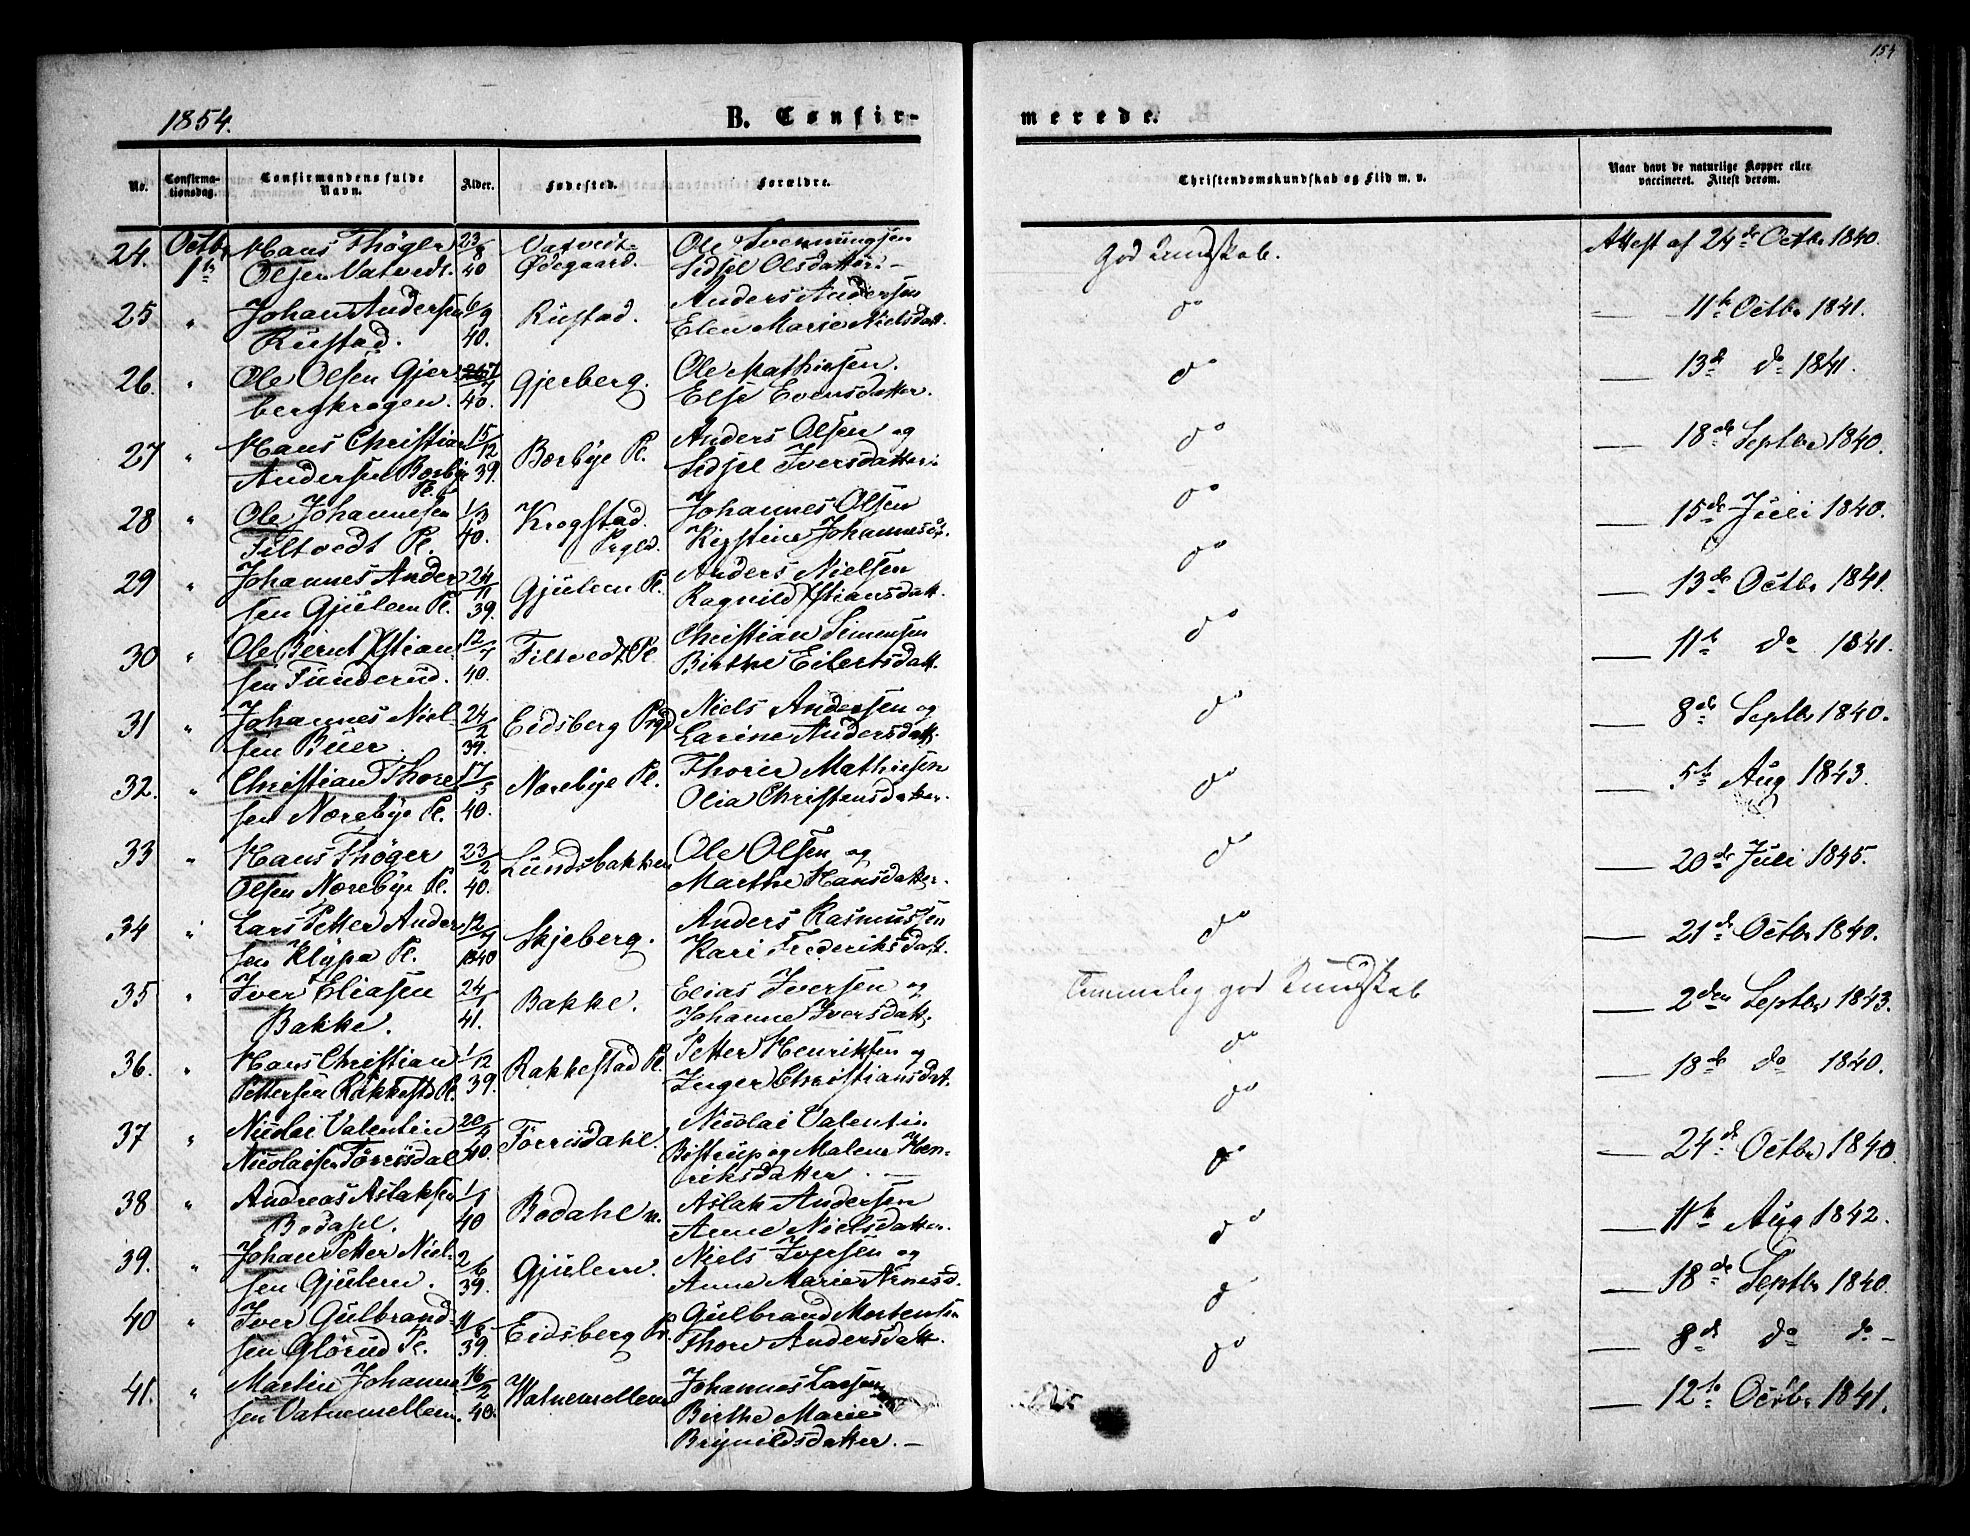 154
1854.
B. Confir-
merede.
No.
Confirma-
tionsdag.
Confirmandens fulde
Navn.
Alder.
Fødested.
Forældre.
Christendomskundskab og Flid m. v.
Naar havt de naturlige Kopper eller
vaccineret. Attest derom.
24. Octbr Hans Thøger 23/8 Vatvedt- Ole Svennungsen God Kundskab. Attest af 24de Octbr 1840.
1ste Olsen Vatvedt. 40 Ødegaard. Sidsel Olsdatter. –
25 " Johan Andersen 6/9 Rustad. Anders Andersen do — 11te Octbr 1841.
Rustad. 40. Elen Marie Nielsdatt.
26. " Ole Olsen Gjer Gjerberg. Ole Mathiesen. do — 13de do 1841.
bergkrogen. 40. Else Evensdatter.
27 " Hans Christian 15/12 Borbye Pl. Anders Olsen og do — 18de Septbr 1840.
Andersen Borbye 39. Sidsel Iversdatter.
Pl.
28 " Ole Johannesen 1/3 Krogstad Johannes Olsen do — 15de Juli 1840.
Tiltvedt Pl. 40. Prgld. Kirstine Johannesd.
29 " Johannes Ander 24/11 Gjulem Pl. Anders Nielsen do — 13de Octbr 1841.
sen Gjulem Pl. 39. Ragnild Xstiansdatt.
30 " Ole Bernt Xstian 12/7 Tiltvedt Pl. Christian Simensen do — 11te do 1841.
sen Funderud. 40. Birthe Eilertsdatt.
31 " Johannes Niel- 24/2 Eidsberg Prgd Niels Andersen og do — 8de Septbr 1840.
sen Buer. 39. Larine Andersdatt.
32. " Christian Thore 17/5 Norebye Pl. Thorer Mathiesen do — 5te Aug 1843.
sen Norebye Pl. 40. Olia Christensdatter.
33 " Hans Thøger 23/2 Lundsbakken Ole Olsen og do — 20de Juli 1845.
Olsen Norebye Pl. 40. Marthe Hansdatter.
34 " Lars Petter Ander 12/9 Skjeberg. Anders Rasmussen do — 21de Octbr 1840.
sen Klypa Pl. 1840 Kari Frederiksdatt.
35 " Iver Eliasen 24/1 Bakke. Elias Iversen og Temmelig god Kundskab — 2den Septbr 1843.
Bakke. 41. Johanne Iversdatt.
36. " Hans Christian 1/12 Rakkestad Pl. Petter Henriksen og do — 18de do 1840.
Pettersen Rakkestd Pl. 39. Inger Christiansdat.
37 " Nicolai Valentin 20/4 Torrisdahl. Nicolai Valentin do — 24de Octbr 1840.
Nicolaisen Torrisdal 40. Bistrup og Malene Hen-
riksdatter. —
38 " Andreas Aslaksen 1/1 Bodahl Aslak Andersen do — 11te Aug 1842.
Bodahl. 40 Anne Nielsdatter.
39. " Johan Petter Niel- 2/6 Gjulem. Niels Iversen og do — 18de Septbr 1840.
sen Gjulem. 39. Anne Marie Arnesd.
40 " Iver Gulbrand- 11/8 Eidsberg Pr. Gulbrand Mortensen do — 8de do do –
sen Glørud Pl. 39. Thore Andersdatt.
41. " Martin Johanne 16/2 Watnemellem Johannes Larsen do — 12te Octbr 1841.
sen Vatnemellem. 40. Birthe Marie
Brynildsdatter. –